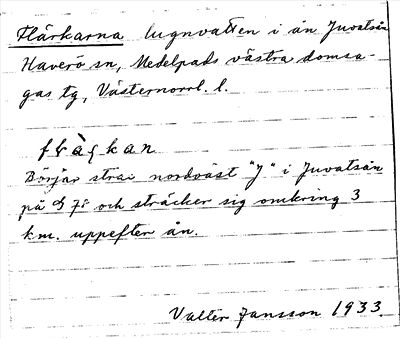 Flärkarna lugnvatten i ån Juvatsån
Haverö sn, Medelpads västra domsa-
gas tg, Västernorrl. l.
Börjar strax nordväst "J" i Juvatsån
på och sträcker sig omkring 3
km. uppefter ån.
Valter Jansson 1933.